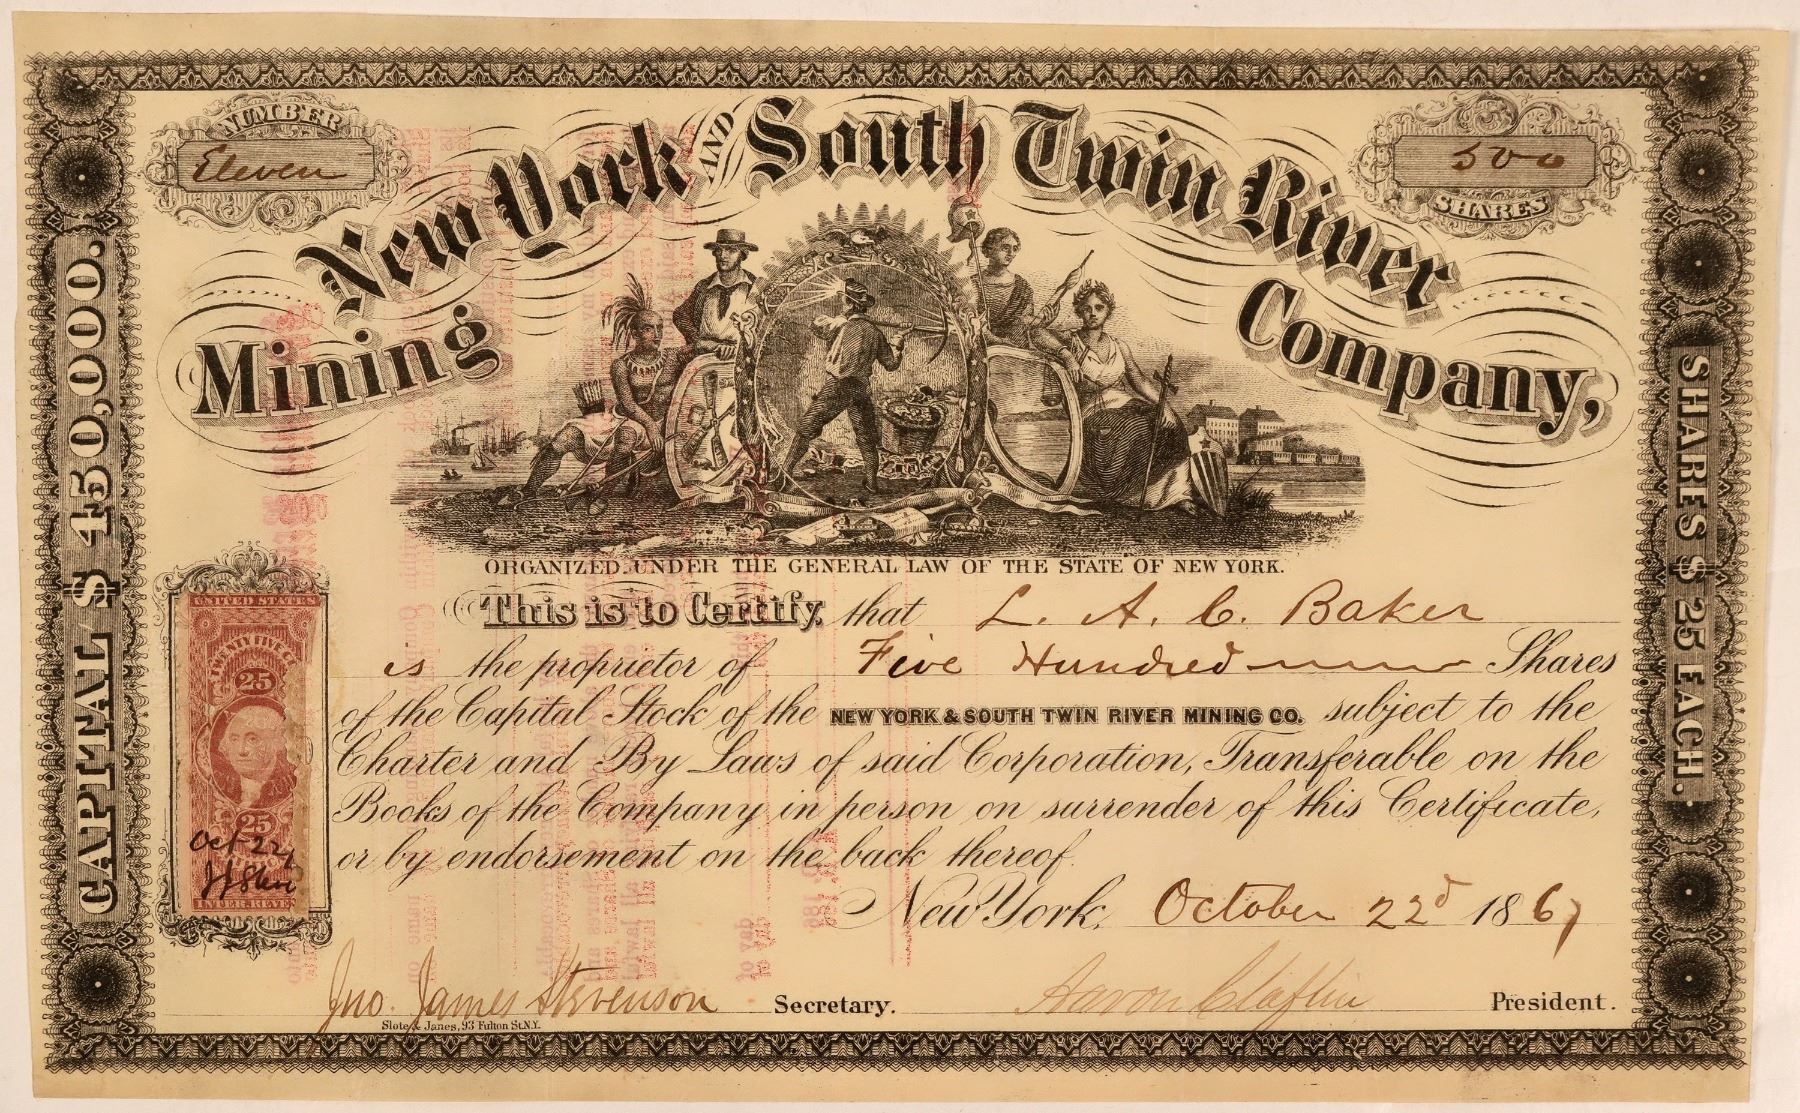 NUMBER
Eleven
500
SHARES
New York AND South Twin River
Mining Company,
CAPITAL $ 450,000.
SHARES $ 25 EACH.
ORGANIZED UNDER THE GENERAL LAW OF THE STATE OF NEW YORK.
This is to Certify that L. A. C. Baker
is the proprietor of Five Hundred Shares
of the Capital Stock of the NEW YORK & SOUTH TWIN RIVER MINING CO. subject to the
Charter and By Laws of said Corporation, Transferable on the
Books of the Company in person on surrender of this Certificate,
or by endorsement on the back thereof.
New York, October 22d 1867
UNITED STATES
TWENTY FIVE CT
25
25
Oct 22
INTER. REVE
Jno. James Stevenson Secretary.
Aaron Claflin President.
Slote & Janes, 93 Fulton St. N.Y.